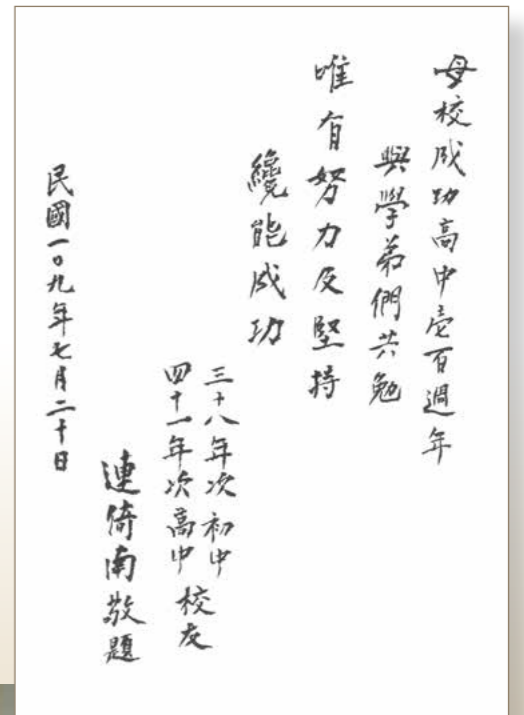 母校成功高中壱百週年
與學弟們共勉
唯有努力及堅持
纔能成功
三十八年次初中
四十一年次高中校友
連倚南敬題
民國一0九年七月二十日